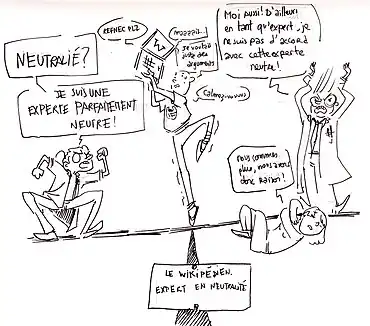 REFNEC PLZ
MAAAIII...
JE VOULAIS
JUSTE DES
ARGUMENTS
Calmez-vous
Moi aussi! D'ailleurs
en tant qu'expert, je
ne suis pas d'accord
avec cette experte
neutre!
NEUTRALIÉ?
JE SUIS UNE
EXPERTE PARFAITEMENT
NEUTRE!
Nous sommes
plus, nous avons
donc raison!
LE WIKIPÉDIEN.
EXPERT EN NEUTRALITÉ